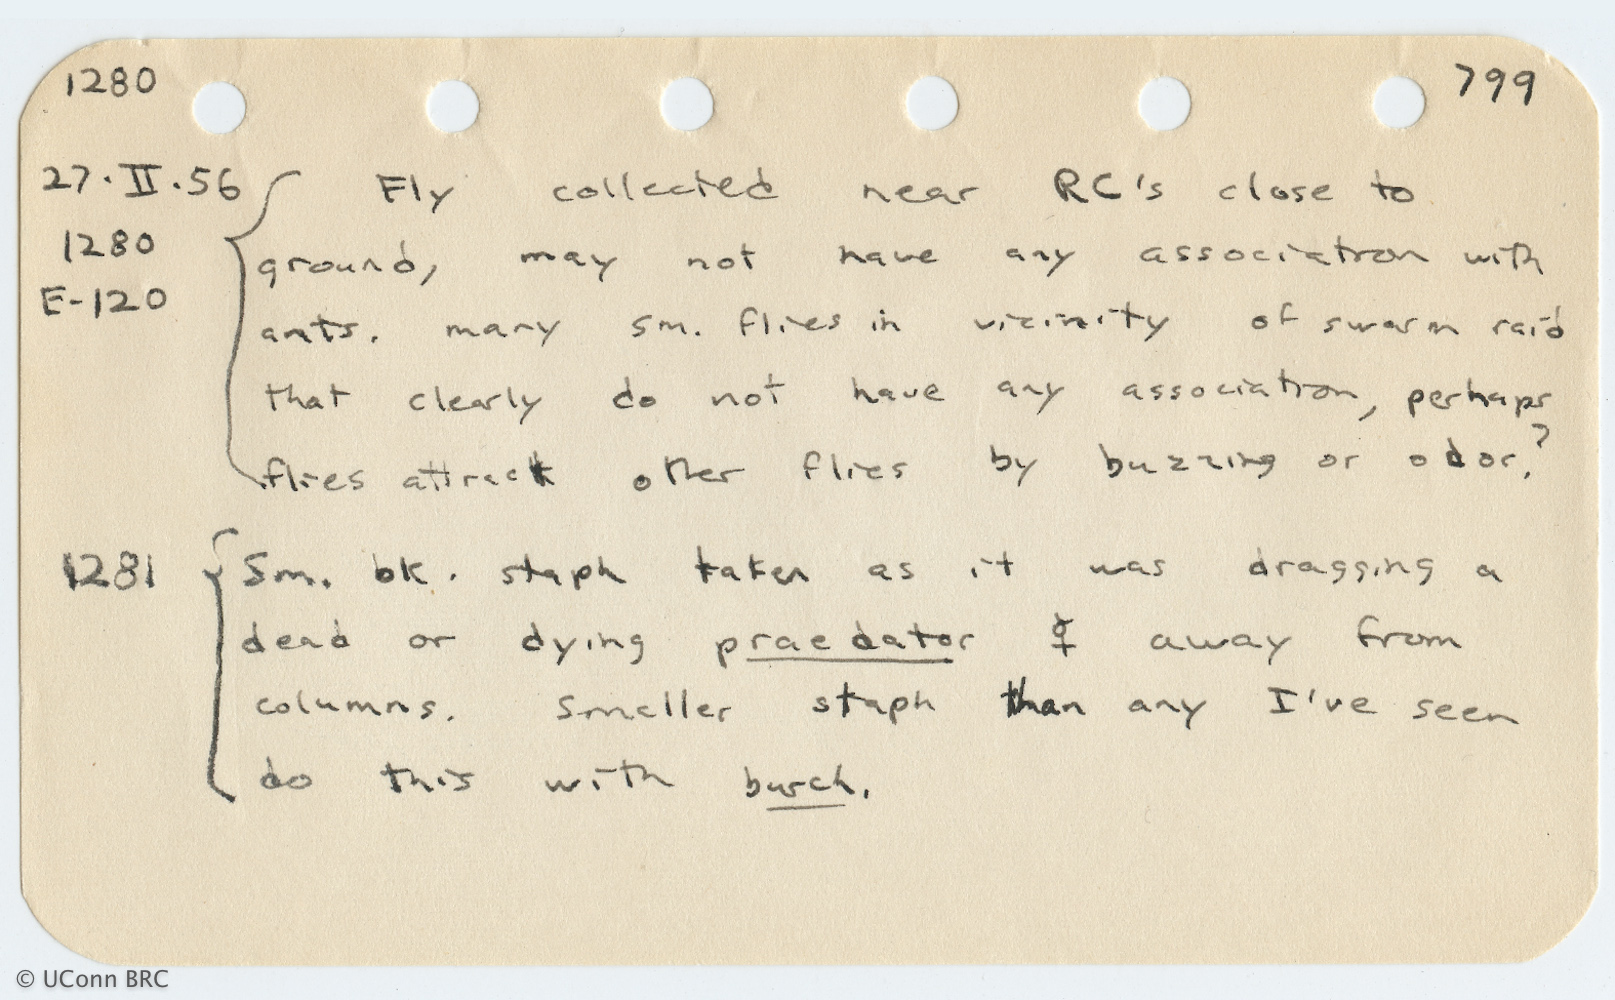 1280 799
27·II·56 Fly collected near RC's close to
1280 ground, may not have any association with
E-120 ants. many sm. flies in vicinity of swarm raid
that clearly do not have any association, perhaps
flies attract other flies by buzzing or odor.?
1281 Sm. bk. staph taken as it was dragging a
dead or dying praedator ☿ away from
columns. Smaller staph than any I've seen
do this with burch.
© UConn BRC